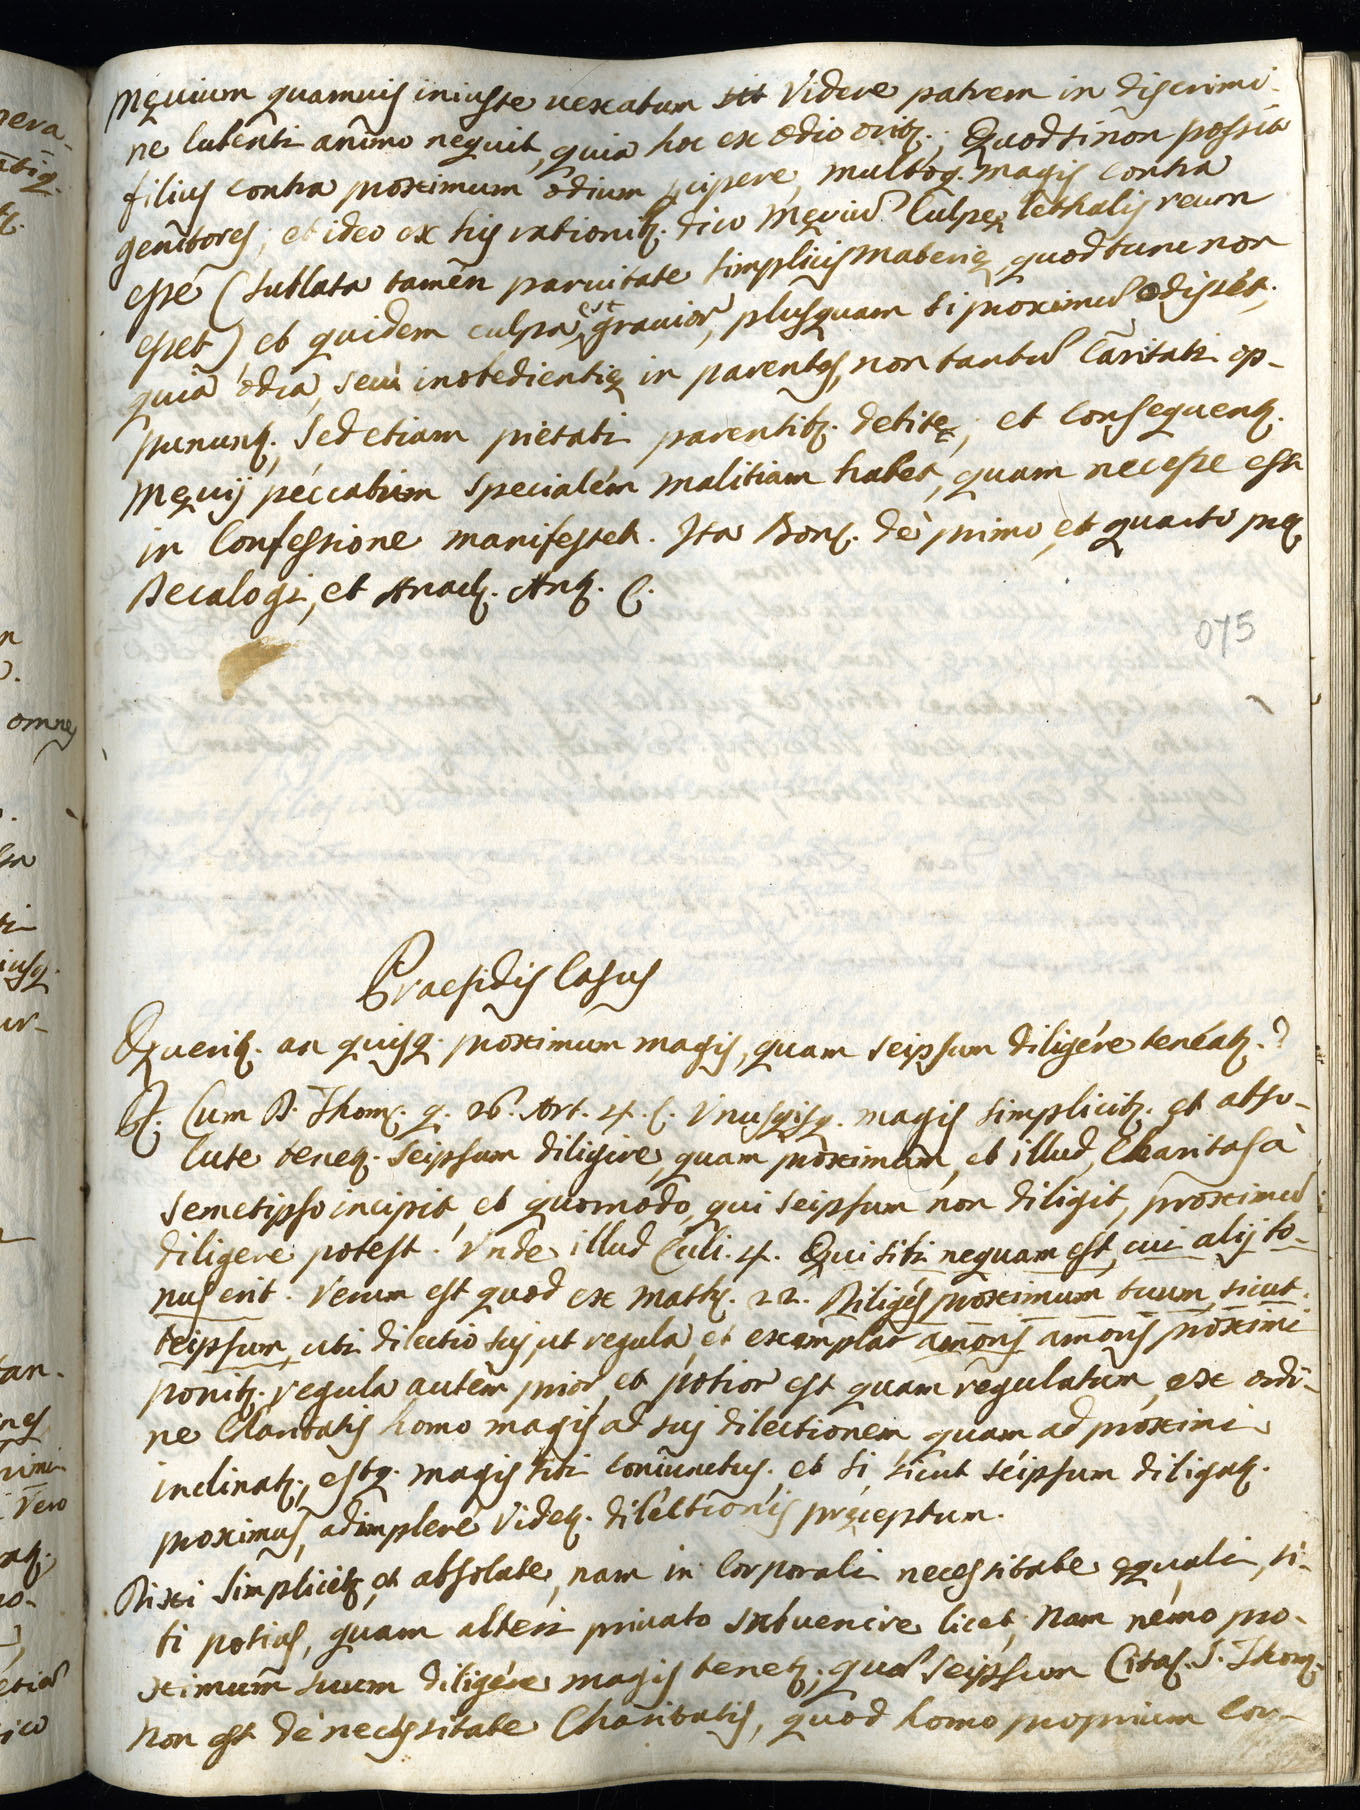 Męuium quamuis iniuste uexatum sit Videre patrem in discrimi-
ne lubenti animo nequit, quia hoc ex odio oritꝫ.; Quodsi non possit
filius contra proximum odium ꝑcipere, multoq. magis contra
genitores; et ideo ex his rationibꝫ. dico Męuiũ Culpę lethalis reum
esse (sublata tamen paruitate simplicis materię, quod tunc non
esset) et quidem culpa est grauior, plusquam si proximũ odisset;
quia odia, seu inobedientię in parentes, non tantũ Caritati op-
pununtꝫ. sed etiam pietati parentibꝫ. debitę; et consequentꝫ.
Męuij peccatum specialem malitiam habet, quam necesse est
in Confessione manifestet. Ita Bonꝫ. de primo, et quarto pręꝫ
Decalogi, et Anaclꝫ. Antꝫ. C.
075
Praesidis Casus
Quęritꝫ. an quisq. proximum magis, quam seipsum diligere teneatꝫ.?
R. Cum D. Thomꝫ. q. 26. Art. 4. C. Vnusqisq. magis simplicitꝫ. et abso-
lute tenetꝫ. seipsum diligere, quam proximum, et illud, Charitas à
semetipso incipit, et quomodo, qui seipsum non diligit, proximũ
diligere potest. Vnde illud Culi. 4. Qui sibi nequam est, cui alij bo-
nus erit. Verum est quod ex Matthꝫ. 22. Diliges proximum tuum, sicut
teipsum, ubi dilectio sui, ut regula, et exemplar amoris amoris proximi
ponitꝫ. regula autem prior, et potior est quam regulatum, ex ordi-
ne Charitatis homo magis ad sui dilectionem quam ad proximi
inclinatꝫ., estq. magis sibi coniunctus. et si sicut seipsum diligatꝫ.
proximus, adimplere Videtꝫ. dilectionis pręceptum.
Dixi simplicitꝫ, et absolute, nam in Corporali necessitate ęquali, si-
bi potius, quam alteri priuato subuenire licet, Nam nemo pro-
ximum suum diligere magis tenetꝫ., quã seipsum Citatꝫ. S. Thomꝫ.
Non est de necessitate Charitatis, quod homo proprium Cor-